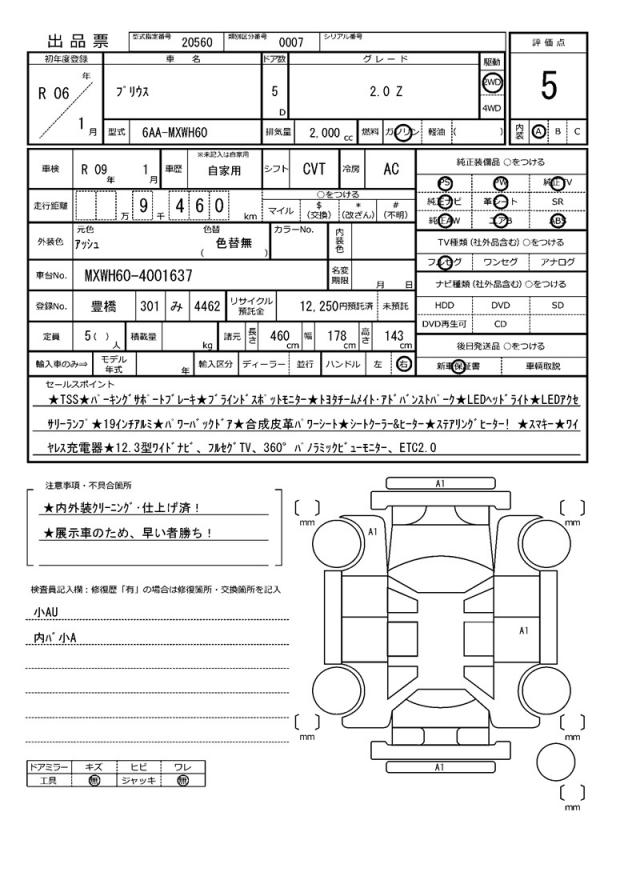 出品票 型式指定番号 20560 類別区分番号 0007 シリアル番号
評価点
5
内装 A B C
初年度登録 車名 ドア数 グレード 駆動
R 06 年 1 月
プリウス 5 D 2.0 Z 2WD 4WD
型式 6AA-MXWH60 排気量 2,000 cc 燃料 ガソリン 軽油 ( )
車検 R 09 年 1 月 車歴 ※未記入は自家用 自家用 シフト CVT 冷房 AC
走行距離 万 9 千 4 6 0 km ○をつける
マイル $(交換) *(改ざん) #(不明)
外装色 元色 アッシュ 色替 ( 色替無 ) カラーNo. 内装色
車台No. MXWH60-4001637 名変期限 月 日
登録No. 豊橋 301 み 4462 リサイクル預託金 12,250円預託済 未預託
定員 5( ) 人 積載量 kg 諸元 長さ 460 cm 幅 178 cm 高さ 143 cm
輸入車のみ⇒ モデル年式 年 輸入区分 ディーラー 並行 ハンドル 左 右
純正装備品 ○をつける
PS PW 純正TV
純正ナビ 革シート SR
純正AW エアB ABS
TV種類 (社外品含む) ○をつける
フルセグ ワンセグ アナログ
ナビ種類 (社外品含む) ○をつける
HDD DVD SD
DVD再生可 CD
後日発送品 ○をつける
新車保証書 車輌取説
セールスポイント
★TSS★パーキングサポートブレーキ★ブラインドスポットモニター★トヨタチームメイト・アドバンストパーク★LEDヘッドライト★LEDアクセ
サリーランプ★19インチアルミ★パワーバックドア★合成皮革パワーシート★シートクーラー&ヒーター★ステアリングヒーター! ★スマキー★ワイ
ヤレス充電器★12.3型ワイドナビ、フルセグTV、360°パノラミックビューモニター、ETC2.0
注意事項・不具合箇所
★内外装クリーニング・仕上げ済!
★展示車のため、早い者勝ち!
検査員記入欄:修復歴「有」の場合は修復箇所・交換箇所を記入
小AU
内バ小A
A1
[ ] mm
[ ] mm
A1
A1
[ ] mm
[ ] mm
A1
[ ] mm
ドアミラー キズ ヒビ ワレ
工具 無 ジャッキ 無